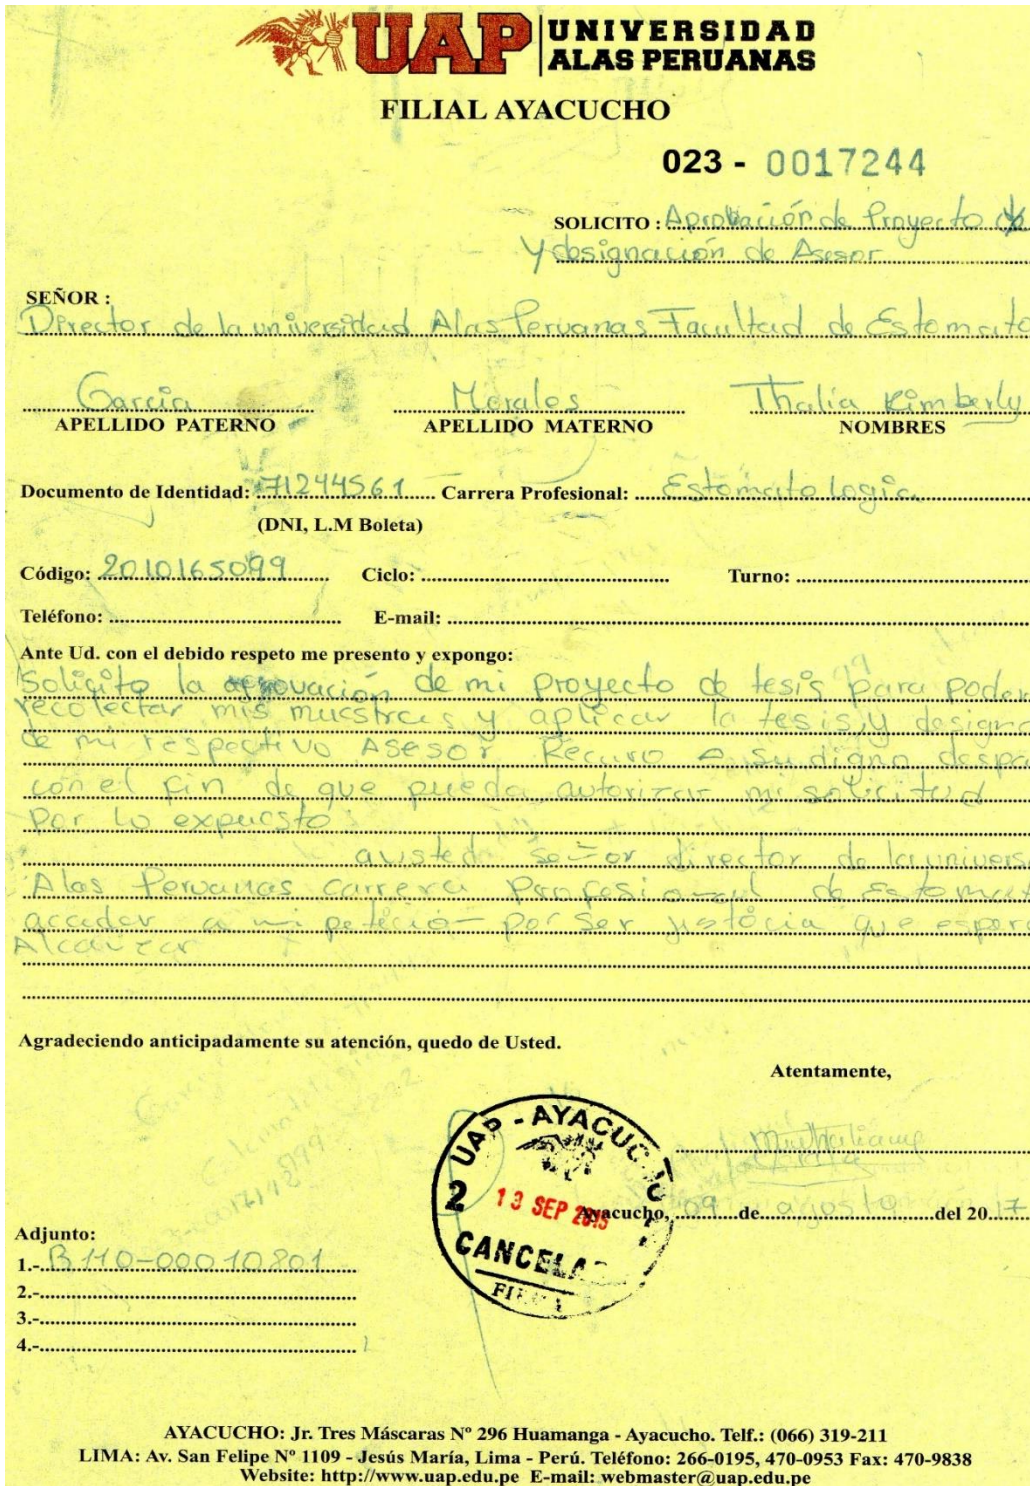 UAP UNIVERSIDAD
ALAS PERUANAS
FILIAL AYACUCHO
023 - 0017244
SOLICITO : Aprobación de Proyecto
Y designación de Asesor
SEÑOR :
Director de la universidad Alas Peruanas Facultad de Estomato
Garcia Morales Thalia Kimberly
APELLIDO PATERNO APELLIDO MATERNO NOMBRES
Documento de Identidad: 71244561 Carrera Profesional: Estomatologia
(DNI, L.M Boleta)
Código: 2010165099 Ciclo: Turno:
Teléfono: E-mail:
Ante Ud. con el debido respeto me presento y expongo:
Solicito la aprovación de mi proyecto de tesis para poder
recolectar mis muestras y aplicar la tesis, y designa
de mi respectivo Asesor. Recurro a su digno despa
con el fin de que pueda autorizar mi solicitud
Por lo expuesto
a usted señor director de la univers
Alas Peruanas carrera Profesional de Estomat
acceder a mi petición por ser justicia que espero
Alcanzar
Agradeciendo anticipadamente su atención, quedo de Usted.
Atentamente,
UAP - AYACUCHO
2
13 SEP 2015
Ayacucho, 09 de agosto del 2017
Adjunto:
1.- B110-00010801
2.-
3.-
4.-
AYACUCHO: Jr. Tres Máscaras Nº 296 Huamanga - Ayacucho. Telf.: (066) 319-211
LIMA: Av. San Felipe Nº 1109 - Jesús María, Lima - Perú. Teléfono: 266-0195, 470-0953 Fax: 470-9838
Website: http://www.uap.edu.pe E-mail: webmaster@uap.edu.pe